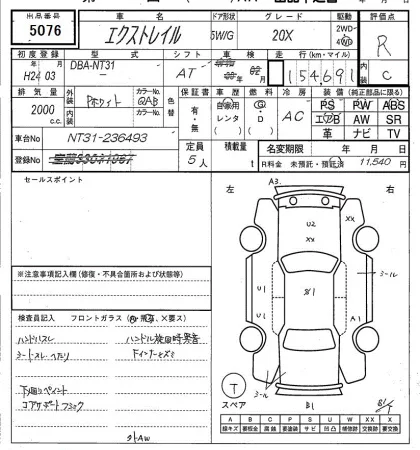 出品番号 車名 ドア形状 グレード 駆動 評価点
5076 エクストレイル 5W/G 20X 2WD 4WD R
初度登録 型式 シフト 車検 走行(km・マイル) 内装
H24年03月 DBA-NT31 AT 02月 154,691 C
排気量 外装 内装 カラーNo. カラーNo. 色替 保証書 車歴 燃料 冷房 装備(純正部品に限る)
2000c.c. QAB 有・無 自家用 レンタ ( ) G・D ( ) AC PS PW ABS
エアB AW SR
革 ナビ TV
車台No NT31-236493 定員 5人 積載量 t 名変期限 年 月 日
登録No R料金 未預託・預託済 11,540
セールスポイント 左 右
A3
U2 XX XX
U1 U1 A1
※注意事項記入欄(修復・不具合箇所および状態等)
検査員記入 フロントガラス
ハンドルスレ ハンドル施回時異音
シートスレ ヘタリ
下廻りペイント
コアサポート
社外AW
T
スペア B1 B1
A B C P S U W X XX
線キズ 要板金 腐蝕 要塗装 サビ 凹凸 補修跡 交換跡 要交換